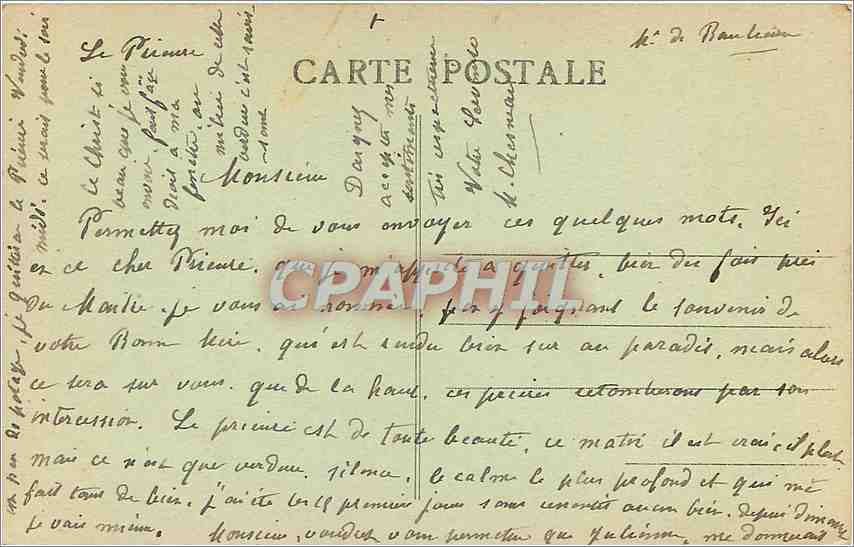 Mr de
CARTE POSTALE
Le Prieuré
Monsieur
Permettez moi de vous envoyer ces quelques mots. Ici
en ce cher Prieuré, que je m'apprête a quitter, bien des fois près
du Maitre, je vous ai nommé, en y joignant le souvenir de
votre Bonne Mère, qui est rendu bien sur au paradis, mais alors
ce sera sur vous, que de la haut, ces prières retomberons par son
intercession. Le prieuré est de toute beauté, ce matin il est vrai, il pleut
mais ce n'est que verdure, silence, le calme le plus profond et qui me
fait tant de bien, j'ai été les premiers jours sans aucun bien, depuis dimanche
je vais mieux. Monsieur, voudrez vous permettre que Julienne, me donnerait
un peu de potage, je quitterai le Prieuré Vendredi
midi. ce serait pour le soir
Le Christ si
beau que je vous
envoie, fait face
droit a ma
fenêtre, au
milieu de cette
verdure c'est
Daignez
accepter mes
sentiments
très respectueux
Votre
M. Chesneau
CPAPHIL